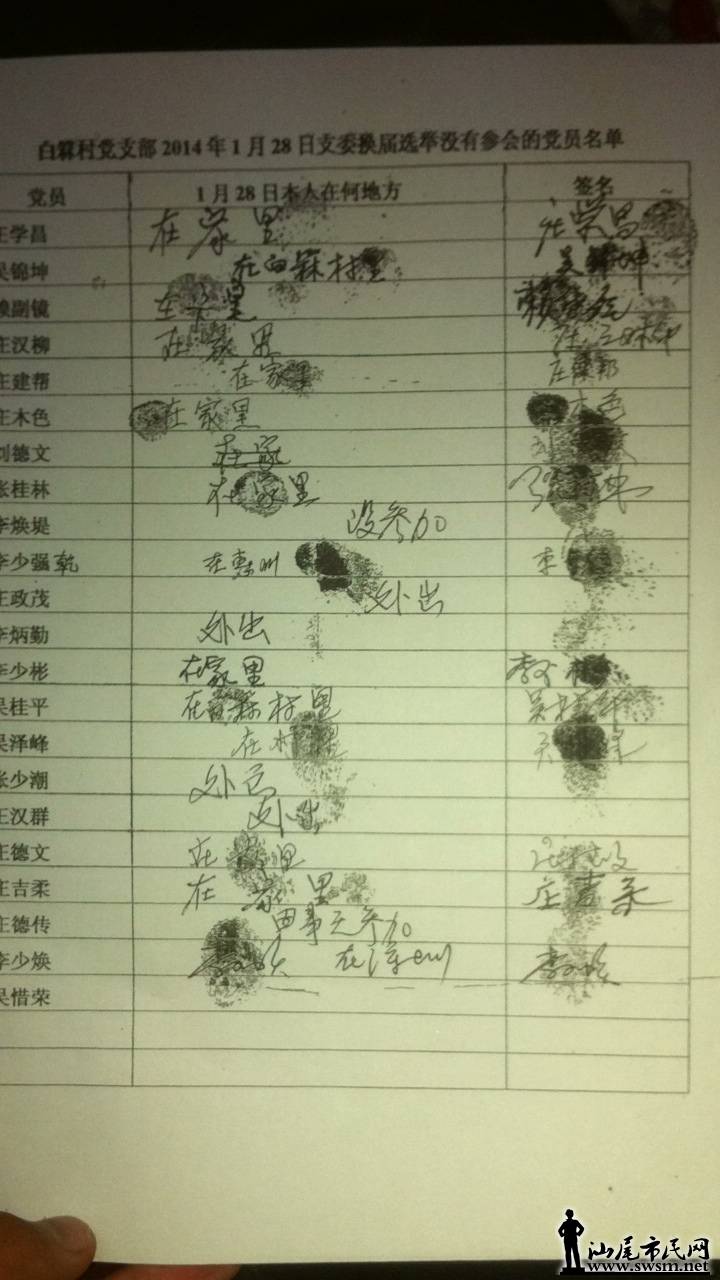 白霖村党支部 2014 年 1 月 28 日支委换届选举没有参会的党员名单
党员 1 月 28 日本人在何地方 签名
庄学昌 在家里
吴锦坤 在白霖村里 吴锦坤
赖副镜 在家里
庄汉柳 在家里
庄建帮 在家里 庄建邦
庄木色 在家里 木色
刘德文 在家 刘
张桂林 在家里 张桂林
李焕堤 没参加
李少强 在惠州 李
庄政茂 外出
李炳勤 外出
李少彬 在家里 李少彬
吴桂平 在白霖村里 吴桂平
吴泽峰 在村里
张少潮 外出
王汉群 外出
庄德文 在家里
庄吉柔 在家里 庄吉柔
庄德传 因事无参加
李少焕 在深圳 李少焕
吴惜荣
汕尾市民网
www.swsm.net